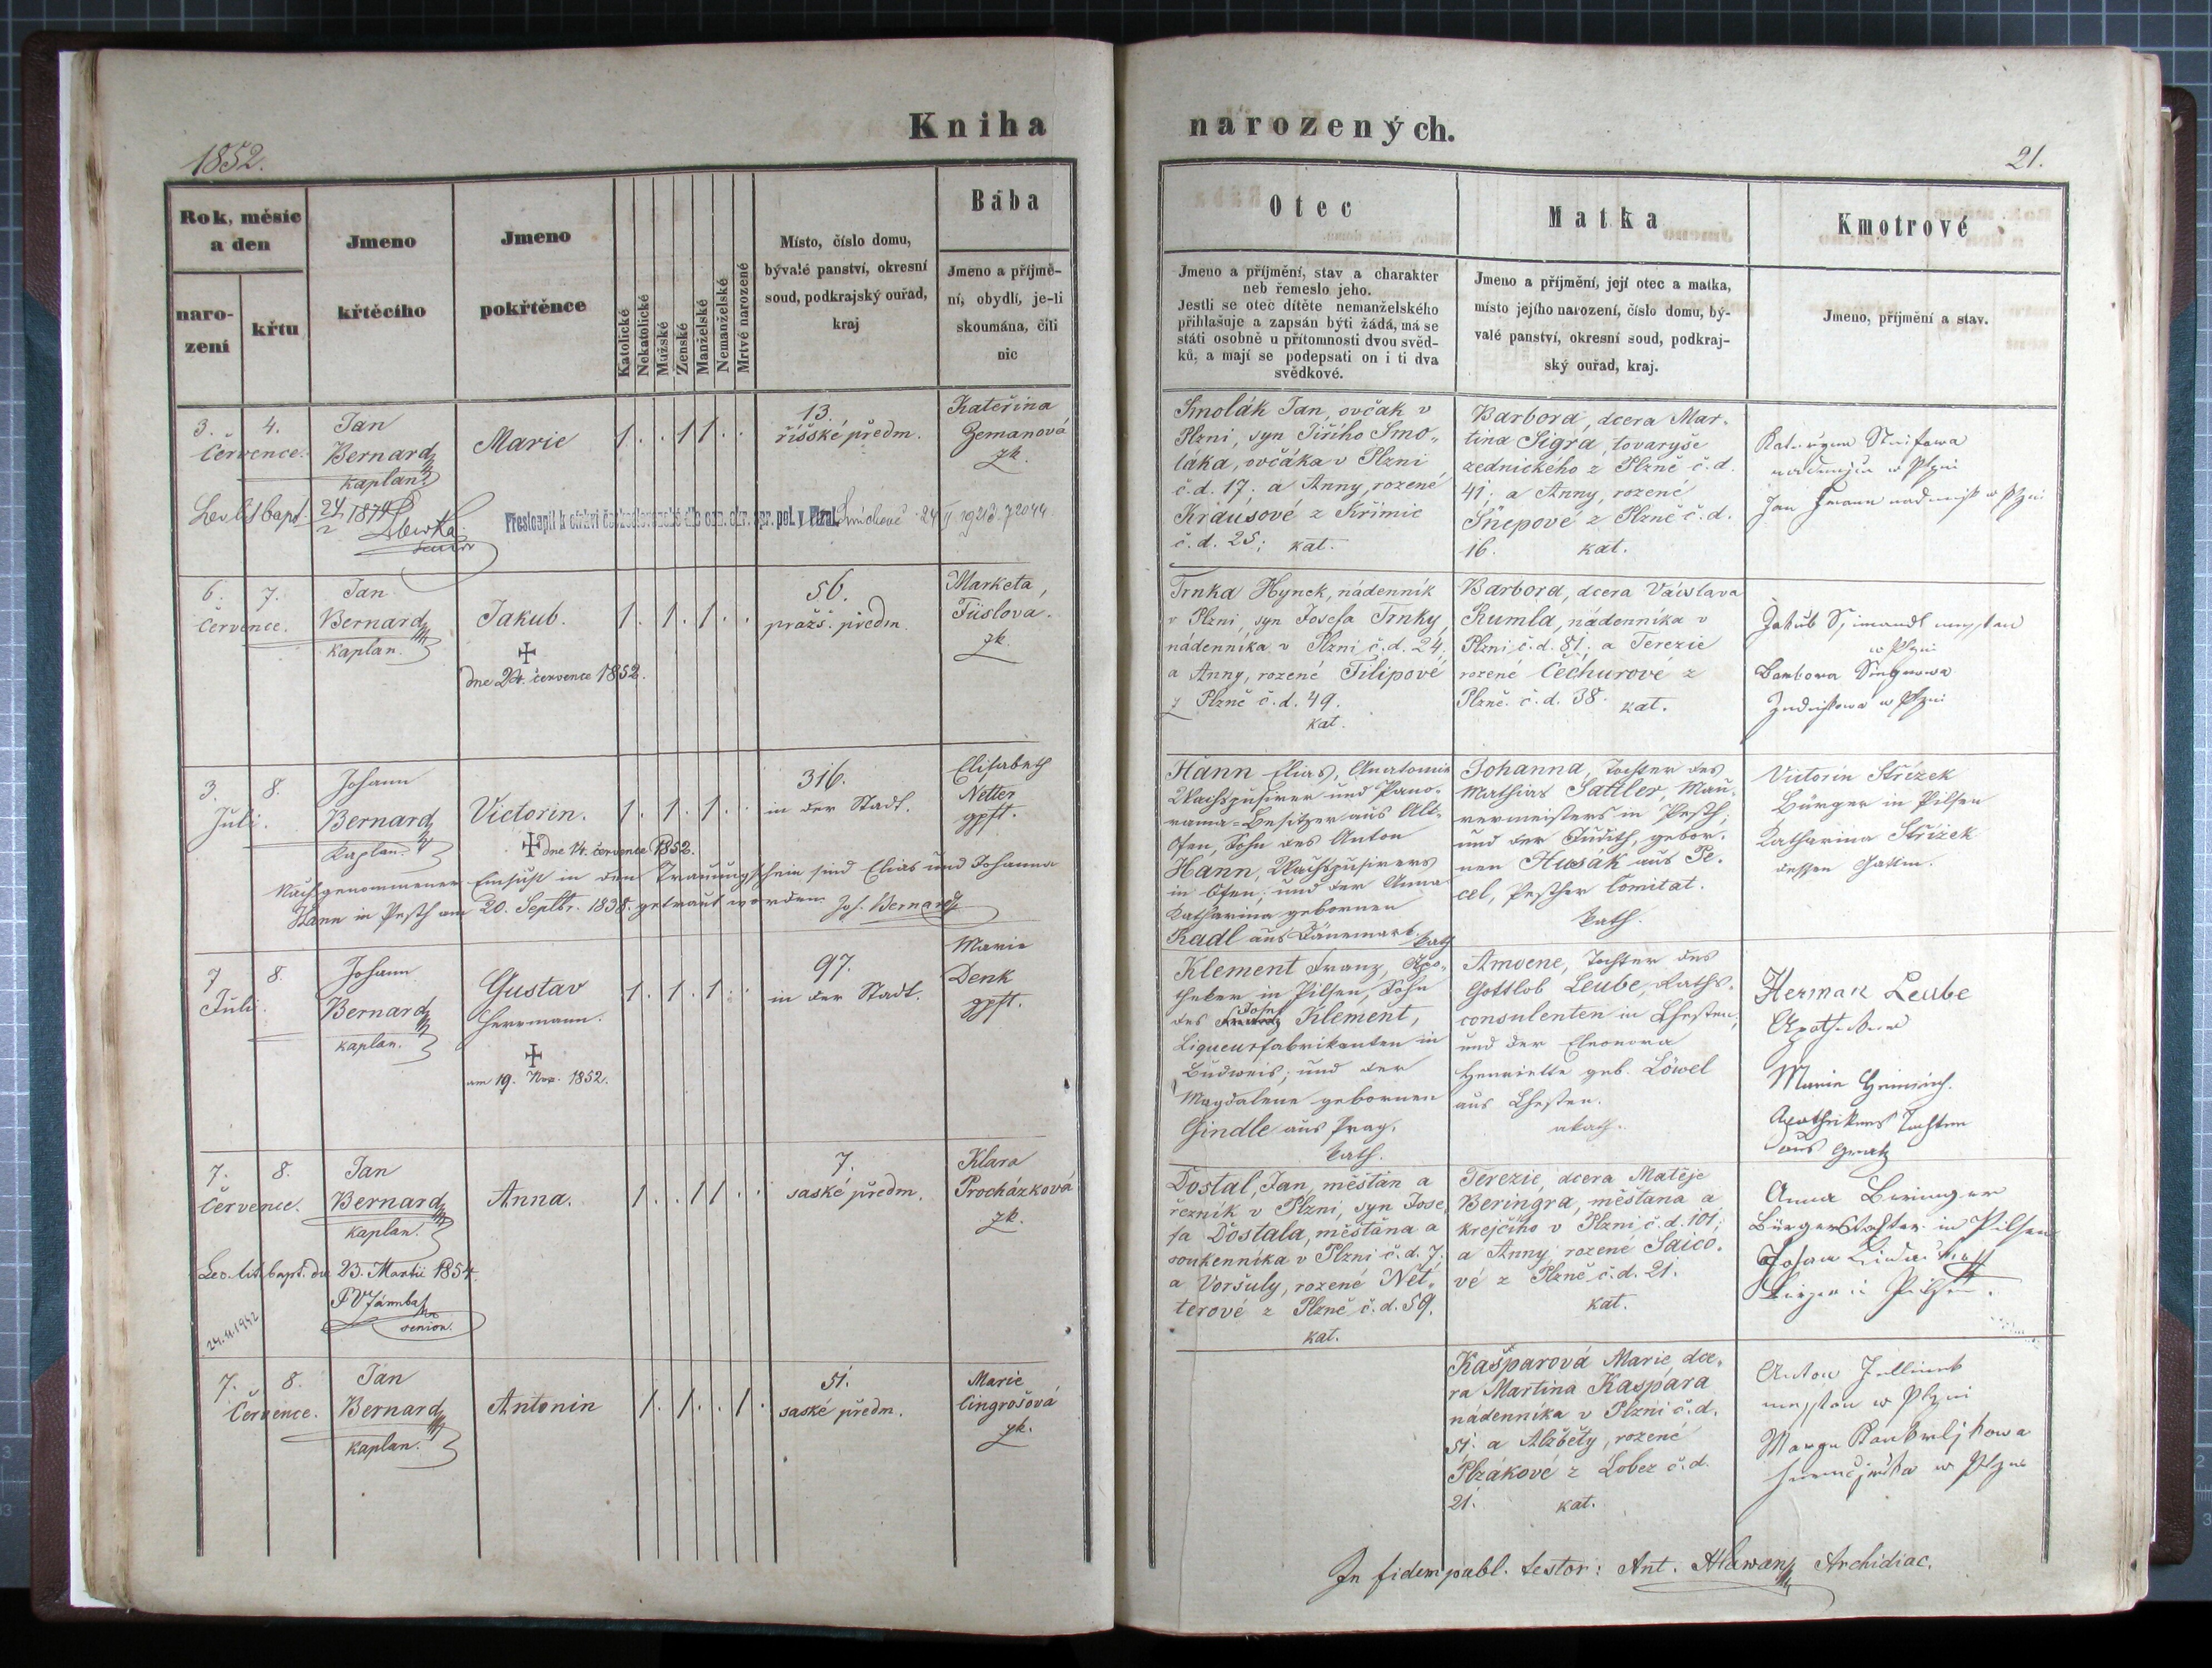 Kniha
1852.
Rok, měsíc
a den
naro-
zení
křtu
Jmeno
křtěcího
Jmeno
pokřtěnce
Katolické
Nekatolické
Mužské
Ženské
Manželské
Nemanželské
Mrtvě narozené
Místo, číslo domu,
bývalé panství, okresní
soud, podkrajský ouřad,
kraj
Bába
Jmeno a příjmě-
ní, obydlí, je-li
skoumána, čili
nic
3. 4.
Července.
Jan
Bernard
kaplan.
Marie
1. . 1 1 . .
13.
říšské předm.
Kateřina
Zemanová
zk.
24/2 1874
Přestoupil k církvi československé dle ozn. okr. spr. pol. v
6. 7.
Července.
Jan
Bernard
kaplan.
Jakub.
dne 24. července 1852.
1. 1. 1. .
56.
pražs. předm.
Marketa,
zk.
3. 8.
Juli.
Johann
Bernard
Kaplan.
Victorin.
dne 14. července 1852.
1. 1. 1. .
316.
in der Stadt.
Elisabeth
Netter
gpft.
Nach genommener Einsicht in den Trauungsschein sind Elias und Johanna
Hann in Pesth am 20. Septbr. 1838. getraut worden. Joh. Bernard
7 8.
Juli.
Johann
Bernard
kaplan.
Gustav
Herrmann.
am 19. Nov. 1852.
1. 1. 1. .
97.
in der Stadt.
Marie
Denk
gpft.
7. 8.
Července.
Jan
Bernard
kaplan.
Anna.
1. . 1 1 . .
7.
saské předm.
Klara
Procházková
zk.
Leo. lit. bapt. du 23. Martii 1854.
senior.
24.11.1942
7. 8.
Července.
Jan
Bernard
kaplan.
Antonin
1. 1. . 1.
51.
saské předm.
Marie
Cingrošová
zk.
narozených.
21.
Otec
Jmeno a příjmění, stav a charakter
neb řemeslo jeho.
Jestli se otec dítěte nemanželského
přihlašuje a zapsán býti žádá, má se
státi osobně u přítomnosti dvou svěd-
ků, a mají se podepsati on i ti dva
svědkové.
Matka
Jmeno a příjmění, její otec a matka,
místo jejího narození, číslo domu, bý-
valé panství, okresní soud, podkraj-
ský ouřad, kraj.
Kmotrové
Jmeno, příjmění a stav.
Smolák Jan, ovčák v
Plzni, syn Jiřího Smo-
láka, ovčáka v Plzni
č.d. 17; a Anny, rozené
Krausové z Křimic
č.d. 25; kat.
Barbora, dcera Mar-
tina Sigra, tovaryše
zednického z Plzně č.d.
41; a Anny, rozené
Šnepové z Plzně č.d.
16. kat.
Trnka Hynek, nádenník
v Plzni, syn Josefa Trnky,
nádenníka v Plzni č.d. 24,
a Anny, rozené Filipové
z Plzně č.d. 49.
kat.
Barbora, dcera Václava
Rumla, nádenníka v
Plzni č.d. 81; a Terezie
rozené Čechurové z
Plzně č.d. 38. kat.
w Plzni
Barbora
w Plzni
Hann Elias, Anatomie
Wachspusirer und Pano-
rama-Besitzer aus Alt-
Ofen, Sohn des Anton
Hann, Wachspusirers
in Ofen; und der Anna
Katharina gebornen
Radl aus Dänemark. kath
Johanna, Tochter des
Mathias Sattler, Mau-
rermeisters in Pesth,
und der Judith, gebor-
nen Husák aus Pe-
cel, Pesther Comitat.
kath.
Victorin Střížek
Bürger in Pilsen
Katharina Střížek
dessen Gattin.
Klement Franz, Apo-
theker in Pilsen, Sohn
des Josef Klement,
Liqueurfabrikanten in
Budweis; und der
Magdalene gebornen
Gindle aus Prag.
kath.
Amoene, Tochter des
Gottlob Leube, Raths-
consulenten in
und der Eleonora
Henriette geb. Löwel
aus
akath.
Herman Leube
Apotheker
Marie
Apothekers Tochter
aus
Dostal, Jan, měštán a
řezník v Plzni, syn Jose-
fa Dostala, měštána a
soukenníka v Plzni č.d. 7,
a Voršuly, rozené Net-
terové z Plzně č.d. 59.
kat.
Terezie, dcera Matěje
Beringra, měštana a
krejčího v Plzni č.d. 101;
a Anny, rozené Saico-
vé z Plzně č.d. 21.
kat.
Anna Beringer
Bürgerstochter in Pilsen
Johan
Bürger in Pilsen.
Kašparová Marie, dce-
ra Martina Kaspara
nádenníka v Plzni č.d.
51; a Alžběty, rozené
Plzákové z Lobez č.d.
21. kat.
Anton
w Plzni
w Plzni
In fidem publ. testor: Ant. Hlawan Archidiac.